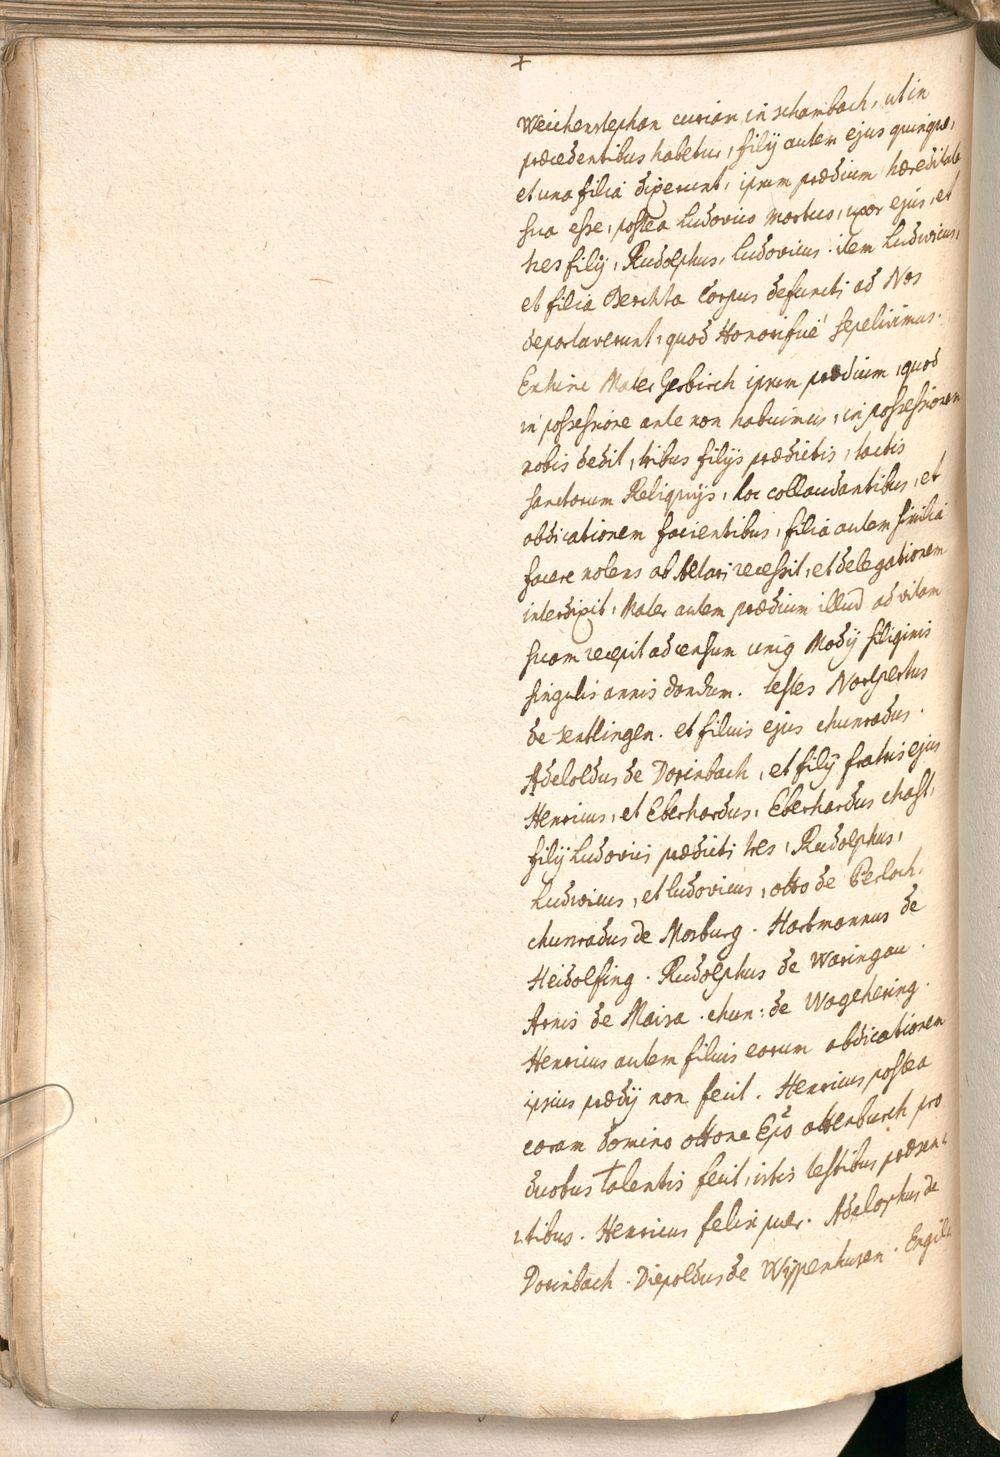 +
Weichenstephan curiam in schambach, ut in
præcedentibus habetur, filij autem ejus quinque,
et una filia dixerunt, ipsum prædium hæreditate
sua esse, postea Ludovico mortuo, uxor ejus, et
tres filij, Rudolphus, Ludovicus. item Ludwicus,
et filia Berchta Corpus defuncti ad Nos
deportaverunt, quod Honorificè sepelivimus.
Exhinc Mater Gerbirch ipsum prædium, quod
in possessione ante non habuimus, in possessionem
nobis dedit, tribus filijs prædictis, tactis
sanctorum Reliquijs, hoc collaudantibus, et
abdicationem facientibus, filia autem similia
facere nolens ab Altari recessit, et delegationem
interdixit, Mater autem prædium illud ad vitam
suam recepit ad censum unig Modij siliginis
singulis annis dandum. testes Nortpertus
de sentlingen. et filius ejus chunradus.
Adeloldus de Dorinbach, et filij fratris ejus
Henricus, et Eberhardus, Eberhardus chast,
filij Ludovici prædicti tres, Rudolphus,
Ludwicus, et ludovicus, otto de Perloch.
chunradus de Mosburg. Hartmannus de
Heidolfing. Rudolphus de Waringau.
Arnis de Maisa. chun: de Wagehering.
Henricus autem filius eorum abdicationem
ipsius prædij non fecit. Henricus postea
coram domino ottone Epõ ottenburch pro
duobus talentis fecit, istis testibus præsen-
-tibus. Henricus felix puer. Adelophus de
Dorinbach. Diepoldus de Wÿpenhusen. Engil-